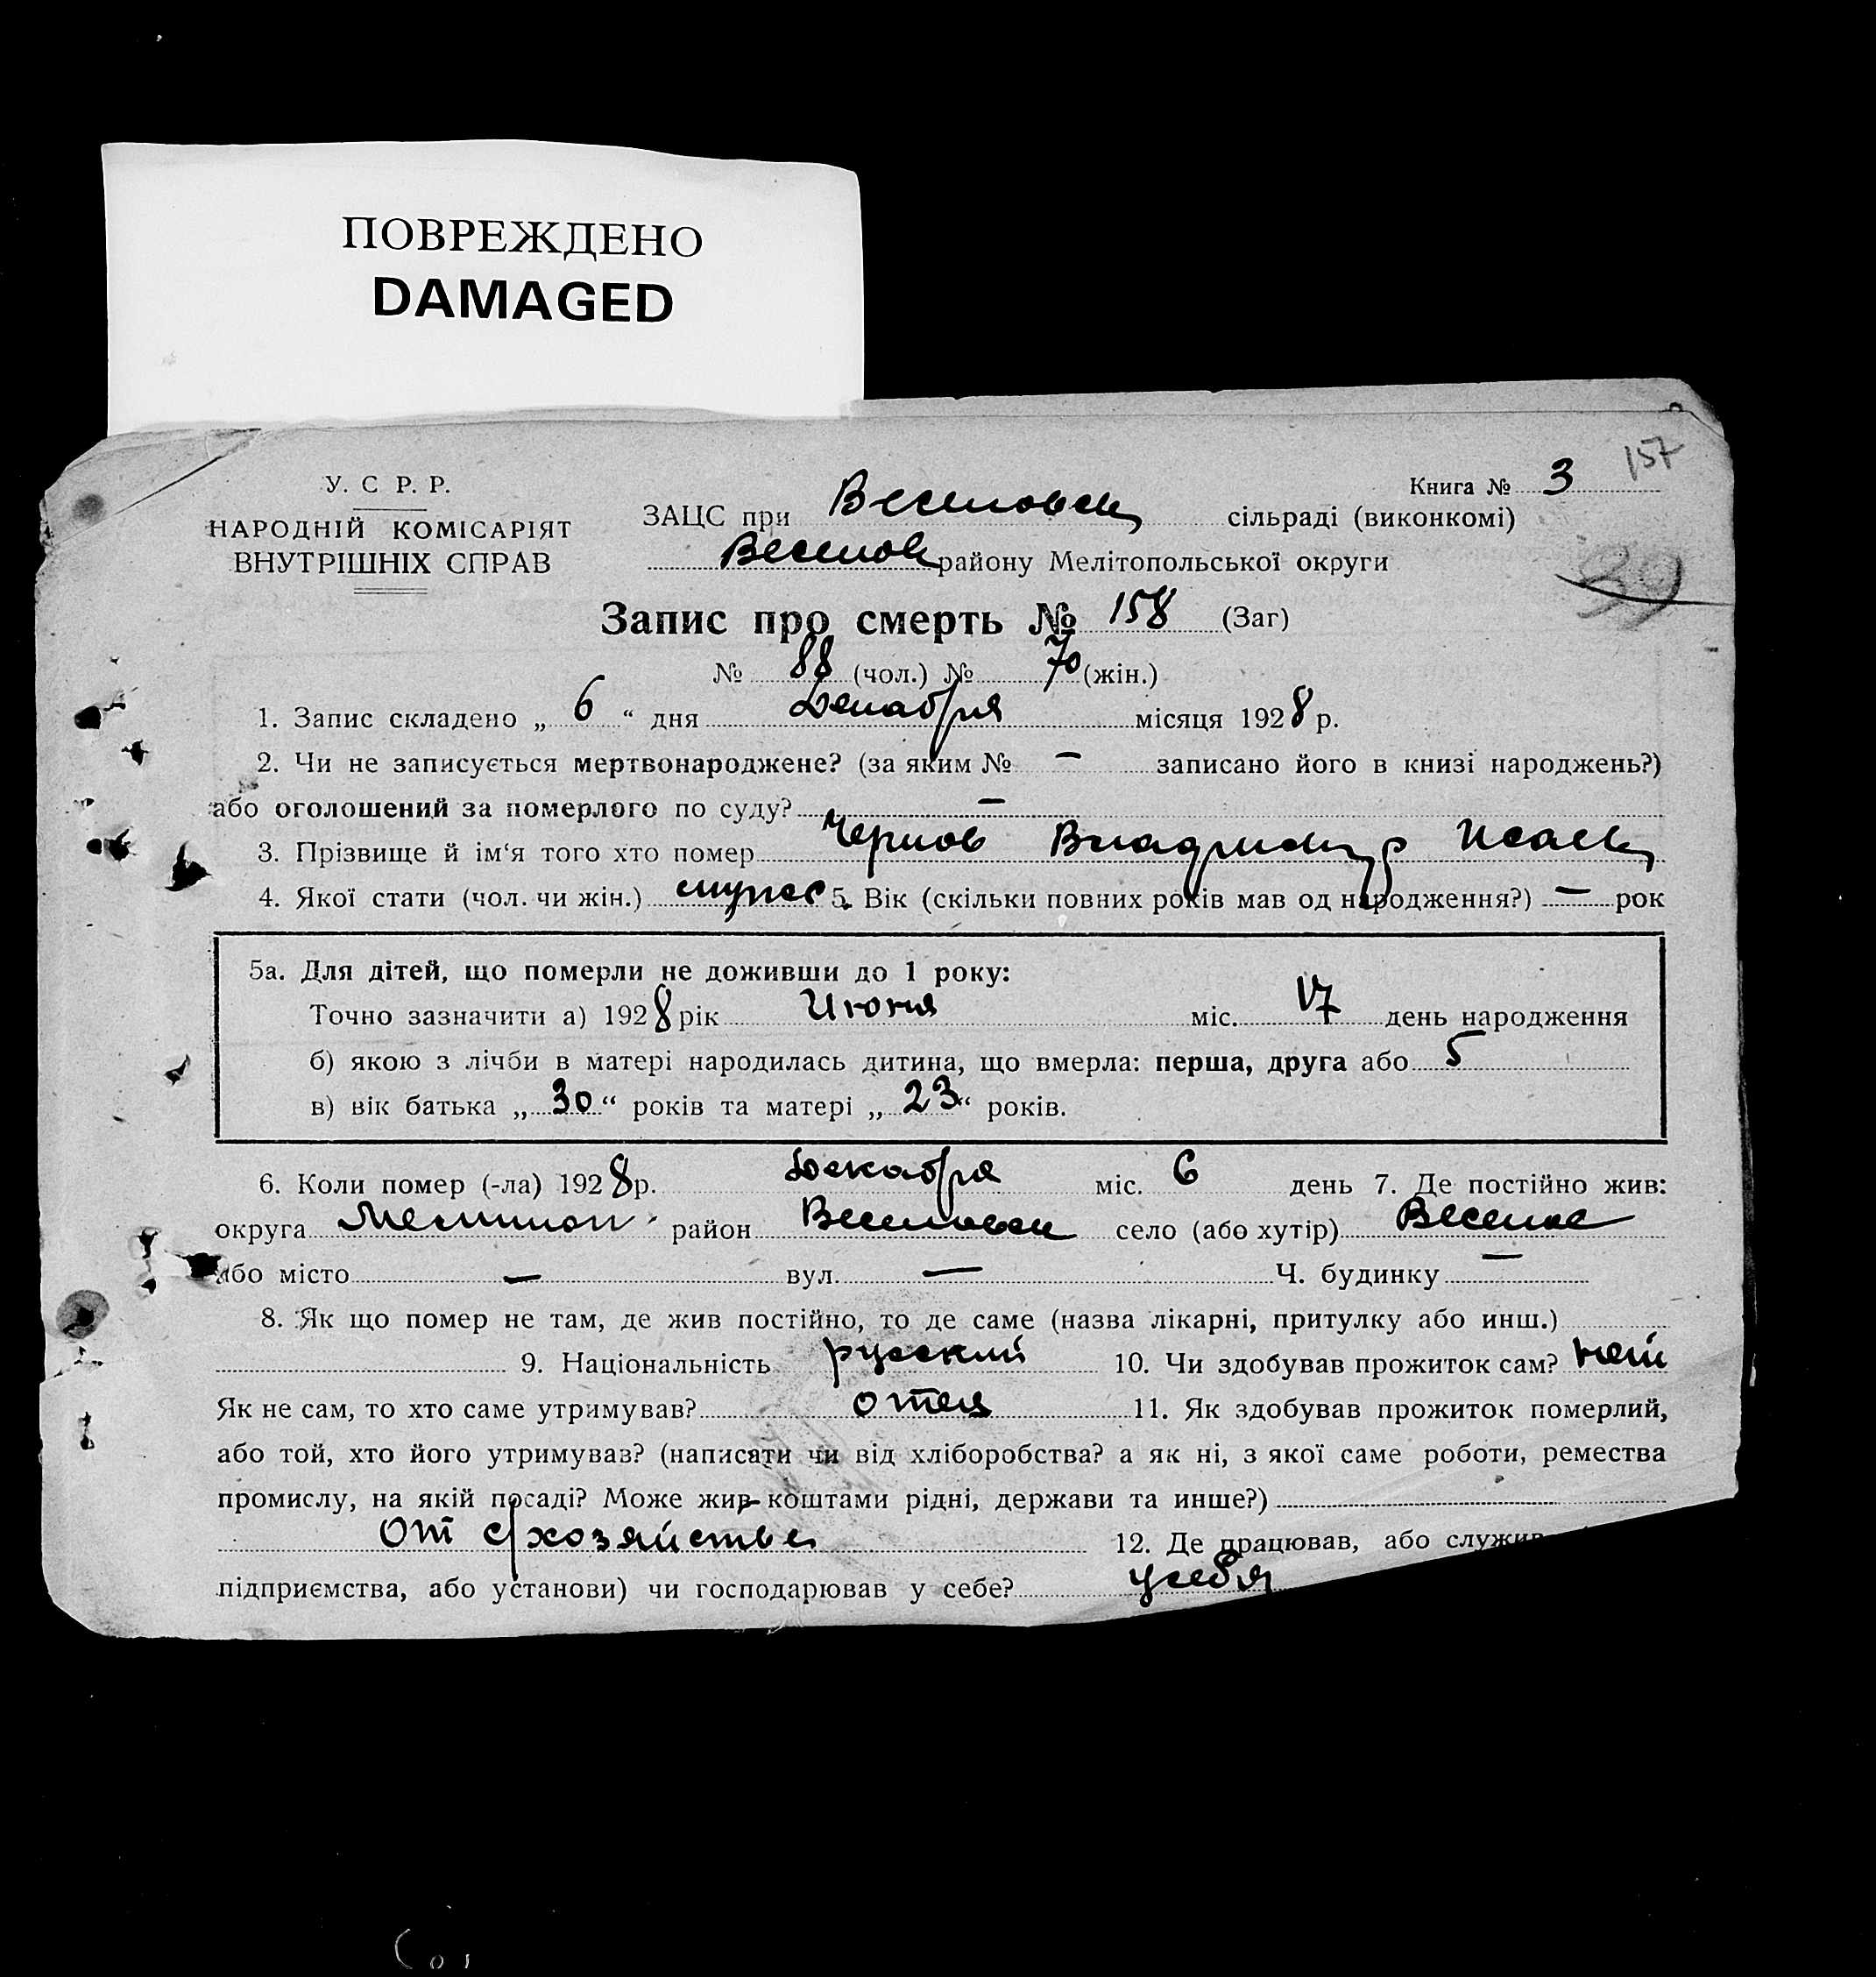 ПОВРЕЖДЕНО
DAMAGED
157
У. С Р. Р.
НАРОДНІЙ КОМІСАРІЯТ
ВНУТРІШНІХ СПРАВ
Книга № 3
ЗАЦС при Веселовск сільраді (виконкомі)
Веселов району Мелітопольської округи
39
Запис про смерть № 158 (Заг)
№ 88 (чол.) № 70 (жін.)
1. Запис складено „ 6 “ дня Декабря місяця 1928 р.
2. Чи не записується мертвонароджене? (за яким № — записано його в книзі народжень?)
або оголошений за померлого по суду? —
3. Прізвище й ім‘я того хто помер Чернов Владимир Исаев
4. Якої стати (чол. чи жін.) мужс 5. Вік (скільки повних років мав од народження?) — рок
5а. Для дітей, що померли не доживши до 1 року:
Точно зазначити а) 1928 рік Июня міс. 17 день народження
б) якою з лічби в матері народилась дитина, що вмерла: перша, друга або 5
в) вік батька „ 30 “ років та матері „ 23 “ років.
6. Коли помер (-ла) 1928 р. Декабря міс. 6 день 7. Де постійно жив:
округа Мелитоп район Веселовск село (або хутір) Веселое
або місто — вул. — Ч. будинку —
8. Як що помер не там, де жив постійно, то де саме (назва лікарні, притулку або инш.)
9. Національність русский 10. Чи здобував прожиток сам? нет
Як не сам, то хто саме утримував? отец 11. Як здобував прожиток померлий,
або той, хто його утримував? (написати чи від хліборобства? а як ні, з якої саме роботи, ремества
промислу, на якій посаді? Може жив коштами рідні, держави та инше?)
от с/хозяйства 12. Де працював, або служив
підприємства, або установи) чи господарював у себе? у себя